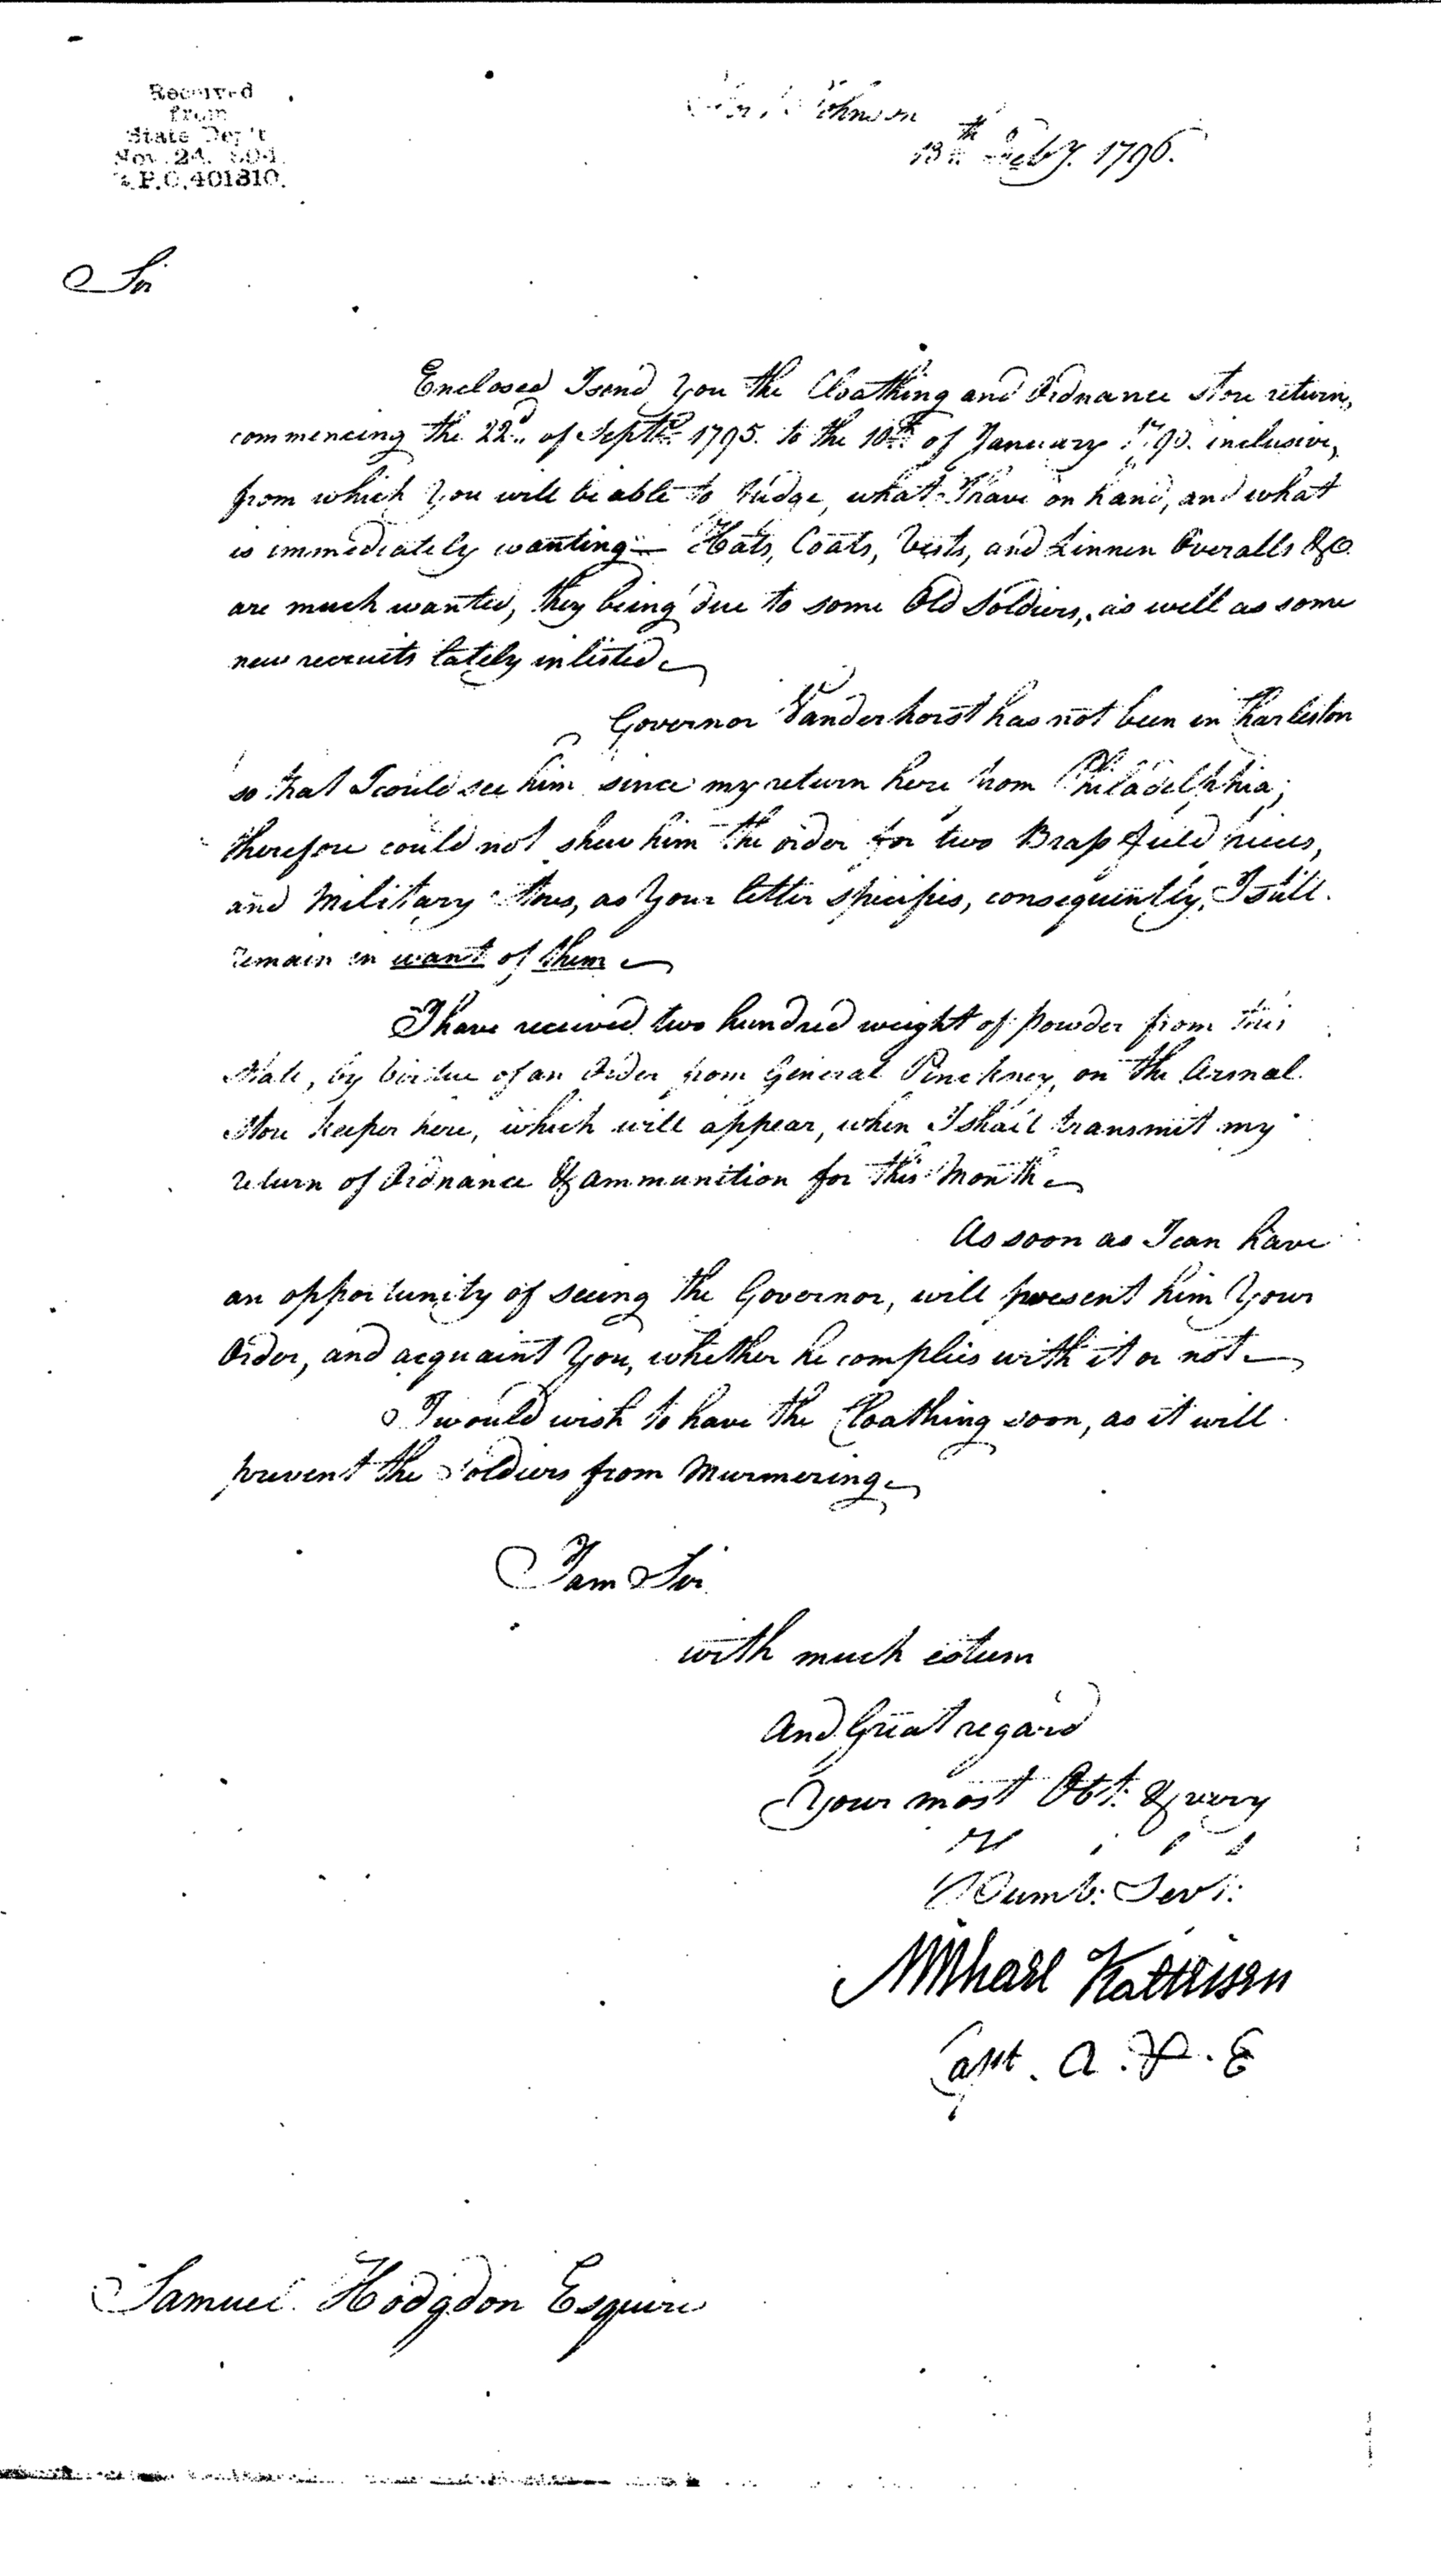 Received
from
State Dep't
Nov. 24.
R.P.O. 401310.
Johnson
13th Feby. 1796.
Sir
Enclosed I send You the Cloathing and Ordnance store return,
commencing the 22d. of Septr. 1795. to the 10th of January inclusive,
from which You will be able to Judge, what I have on hand, and what
is immediately wanting — Hats, Coats, Vests, and Linnen Overalls &c.
are much wanted, they being due to some Old Soldiers, as well as some
new recruits lately inlisted
Governor Vanderhorst has not been in Charleston
so that I could see him since my return here from Philadelphia;
therefore could not shew him the order for two Brass field pieces,
and Military stores, as Your letter specifies, consequently, I still
remain in want of them
I have received two hundred weight of powder from this
State, by Virtue of an Order from General Pinckney, on the Arsnal
Store keeper here, which will appear, when I shall transmit my
return of Ordnance & ammunition for this Month
As soon as I can have
an opportunity of seeing the Governor, will present him Your
Order, and acquaint You, whether he complies with it or not
I would wish to have the Cloathing soon, as it will
prevent the Soldiers from Murmering
I am Sir
with much esteem
And Great regard
Your most Obt. & very
Humb: Servt:
Michael Kalteisen
Capt. A. & E
Samuel Hodgdon Esquire